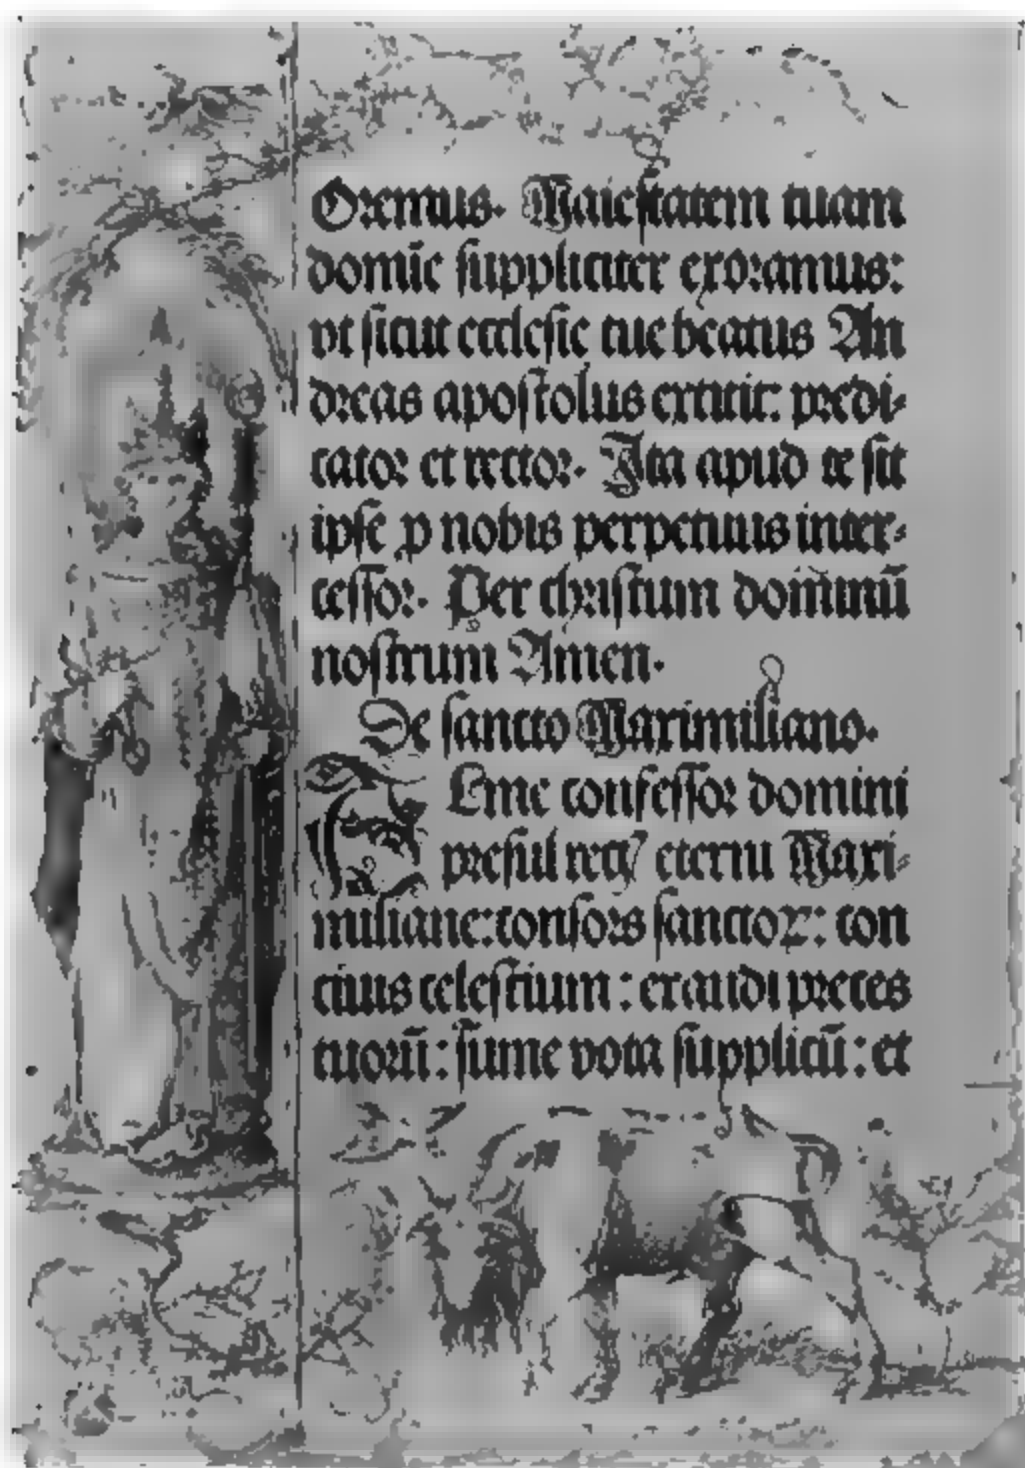 Oremus. Maiestatem tuam
domie suppliciter exoramus:
vt sicut ecclesie tue beatus An
dreas apostolus extitit: predi-
cator et rector. Ita apud te sit
ipse p nobis perpetuus inter-
cessor. Per christum dominū
nostrum Amen.
De sancto Maximiliano.
Alme confessor domini
presul eterni Maxi-
miliane: consors sanctoꝝ: con
ciuis celestium: exaudi preces
tuorū: sume vota supplicū: et